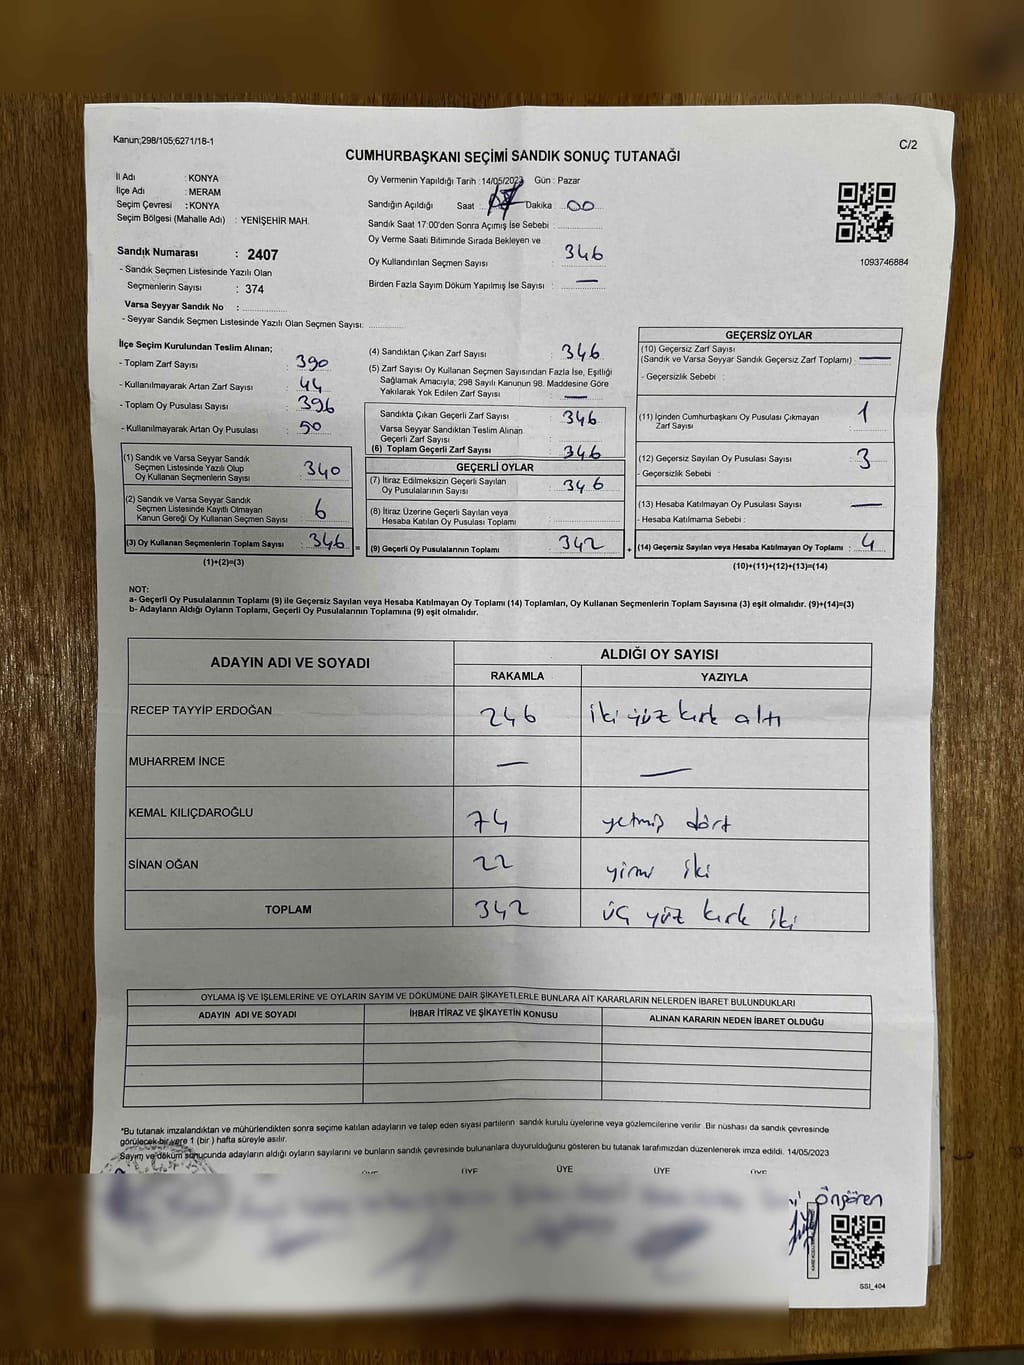 Kanun;298/105;6271/18-1
C/2
CUMHURBAŞKANI SEÇİMİ SANDIK SONUÇ TUTANAĞI
İl Adı : KONYA
İlçe Adı : MERAM
Seçim Çevresi : KONYA
Seçim Bölgesi (Mahalle Adı) : YENİŞEHİR MAH.
Sandık Numarası : 2407
- Sandık Seçmen Listesinde Yazılı Olan
Seçmenlerin Sayısı : 374
Varsa Seyyar Sandık No :
- Seyyar Sandık Seçmen Listesinde Yazılı Olan Seçmen Sayısı:
Oy Vermenin Yapıldığı Tarih : 14/05/2023 Gün : Pazar
Sandığın Açıldığı Saat : Dakika : 00
Sandık Saat 17:00'den Sonra Açımış İse Sebebi :
Oy Verme Saati Bitiminde Sırada Bekleyen ve
Oy Kullandırılan Seçmen Sayısı : 346
Birden Fazla Sayım Döküm Yapılmış İse Sayısı : —
1093746884
İlçe Seçim Kurulundan Teslim Alınan;
- Toplam Zarf Sayısı : 390
- Kullanılmayarak Artan Zarf Sayısı : 44
- Toplam Oy Pusulası Sayısı : 396
- Kullanılmayarak Artan Oy Pusulası : 50
(1) Sandık ve Varsa Seyyar Sandık
Seçmen Listesinde Yazılı Olup
Oy Kullanan Seçmenlerin Sayısı : 340
(2) Sandık ve Varsa Seyyar Sandık
Seçmen Listesinde Kayıtlı Olmayan
Kanun Gereği Oy Kullanan Seçmen Sayısı : 6
(3) Oy Kullanan Seçmenlerin Toplam Sayısı : 346 =
(1)+(2)=(3)
(4) Sandıktan Çıkan Zarf Sayısı : 346
(5) Zarf Sayısı Oy Kullanan Seçmen Sayısından Fazla İse, Eşitliği
Sağlamak Amacıyla; 298 Sayılı Kanunun 98. Maddesine Göre
Yakılarak Yok Edilen Zarf Sayısı : —
Sandıkta Çıkan Geçerli Zarf Sayısı : 346
Varsa Seyyar Sandıktan Teslim Alınan
Geçerli Zarf Sayısı :
(6) Toplam Geçerli Zarf Sayısı : 346
GEÇERLİ OYLAR
(7) İtiraz Edilmeksizin Geçerli Sayılan
Oy Pusulalarının Sayısı : 346
(8) İtiraz Üzerine Geçerli Sayılan veya
Hesaba Katılan Oy Pusulası Toplamı :
(9) Geçerli Oy Pusulalarının Toplamı : 342 +
GEÇERSİZ OYLAR
(10) Geçersiz Zarf Sayısı
(Sandık ve Varsa Seyyar Sandık Geçersiz Zarf Toplamı) : —
- Geçersizlik Sebebi :
(11) İçinden Cumhurbaşkanı Oy Pusulası Çıkmayan
Zarf Sayısı : 1
(12) Geçersiz Sayılan Oy Pusulası Sayısı : 3
- Geçersizlik Sebebi :
(13) Hesaba Katılmayan Oy Pusulası Sayısı : —
- Hesaba Katılmama Sebebi :
(14) Geçersiz Sayılan veya Hesaba Katılmayan Oy Toplamı : 4
(10)+(11)+(12)+(13)=(14)
NOT:
a- Geçerli Oy Pusulalarının Toplamı (9) ile Geçersiz Sayılan veya Hesaba Katılmayan Oy Toplamı (14) Toplamları, Oy Kullanan Seçmenlerin Toplam Sayısına (3) eşit olmalıdır. (9)+(14)=(3)
b- Adayların Aldığı Oyların Toplamı, Geçerli Oy Pusulalarının Toplamına (9) eşit olmalıdır.
ADAYIN ADI VE SOYADI
ALDIĞI OY SAYISI
RAKAMLA YAZIYLA
RECEP TAYYİP ERDOĞAN 246 iki yüz kırk altı
MUHARREM İNCE — —
KEMAL KILIÇDAROĞLU 74 yetmiş dört
SİNAN OĞAN 22 yirmi iki
TOPLAM 342 üç yüz kırk iki
OYLAMA İŞ VE İŞLEMLERİNE VE OYLARIN SAYIM VE DÖKÜMÜNE DAİR ŞİKAYETLERLE BUNLARA AİT KARARLARIN NELERDEN İBARET BULUNDUKLARI
ADAYIN ADI VE SOYADI İHBAR İTİRAZ VE ŞİKAYETİN KONUSU ALINAN KARARIN NEDEN İBARET OLDUĞU
*Bu tutanak imzalandıktan ve mühürlendikten sonra seçime katılan adayların ve talep eden siyasi partilerin sandık kurulu üyelerine veya gözlemcilerine verilir. Bir nüshası da sandık çevresinde
görülecek bir yere 1 (bir) hafta süreyle asılır.
Sayım ve döküm sonucunda adayların aldığı oyların sayılarını ve bunların sandık çevresinde bulunanlara duyurulduğunu gösteren bu tutanak tarafımızdan düzenlenerek imza edildi. 14/05/2023
ÜYE ÜYE ÜYE ÜYE ÜYE
Öngören
SSI_404